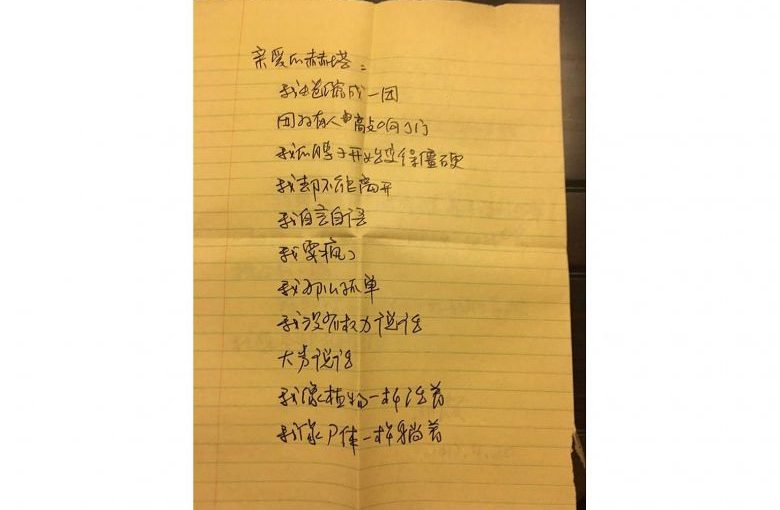 亲爱的赫塔：
我也蜷缩成一团
因为有人敲响了门
我的脖子开始变得僵硬
我却不能离开
我自言自语
我要疯了
我那么孤单
我没有权力说话
大声说话
我像植物一样活着
我像尸体一样躺着